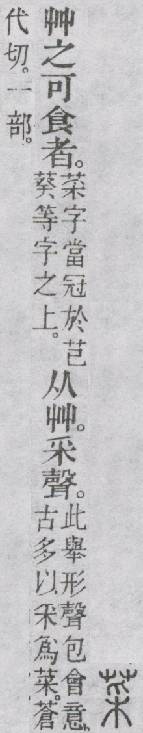 菜
艸之可食者。
菜字當冠於芑
葵等字之上。
从艸。采聲。
此舉形聲包會意。
古多以采爲菜。蒼
代切。一部。